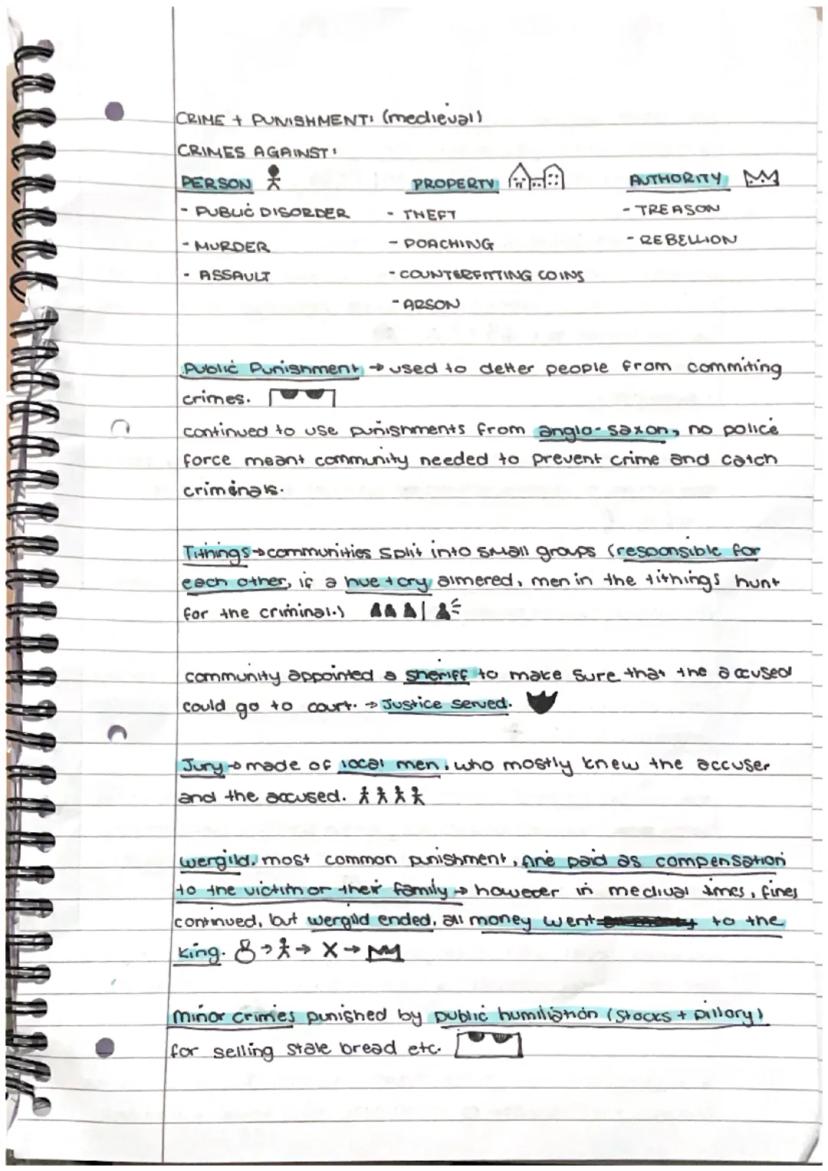 CRIME + PUNISHMENT: (medieval)
CRIMES AGAINST:
PERSON PROPERTY AUTHORITY
- PUBLIC DISORDER - THEFT - TREASON
- MURDER - POACHING - REBELLION
- ASSAULT - COUNTERFITTING COINS
- ARSON
Public Punishment → used to detter people from commiting
crimes.
continued to use punishments from anglo-saxon, no police
force meant community needed to prevent crime and catch
criminals.
Tithings → communities split into small groups (responsible for
each other, if a hue + cry almered, men in the tithings hunt
for the criminal.)
community appointed a sheriff to make sure that the accused
could go to court. → Justice served.
Jury → made of local men, who mostly knew the accuser
and the accused.
wergild, most common punishment, fine paid as compensation
to the victim or their family → however in medival times, fines
continued, but wergild ended, all money went to the
king. → → X →
minor crimies punished by public humiliation (stocks + pillary)
for selling stale bread etc.